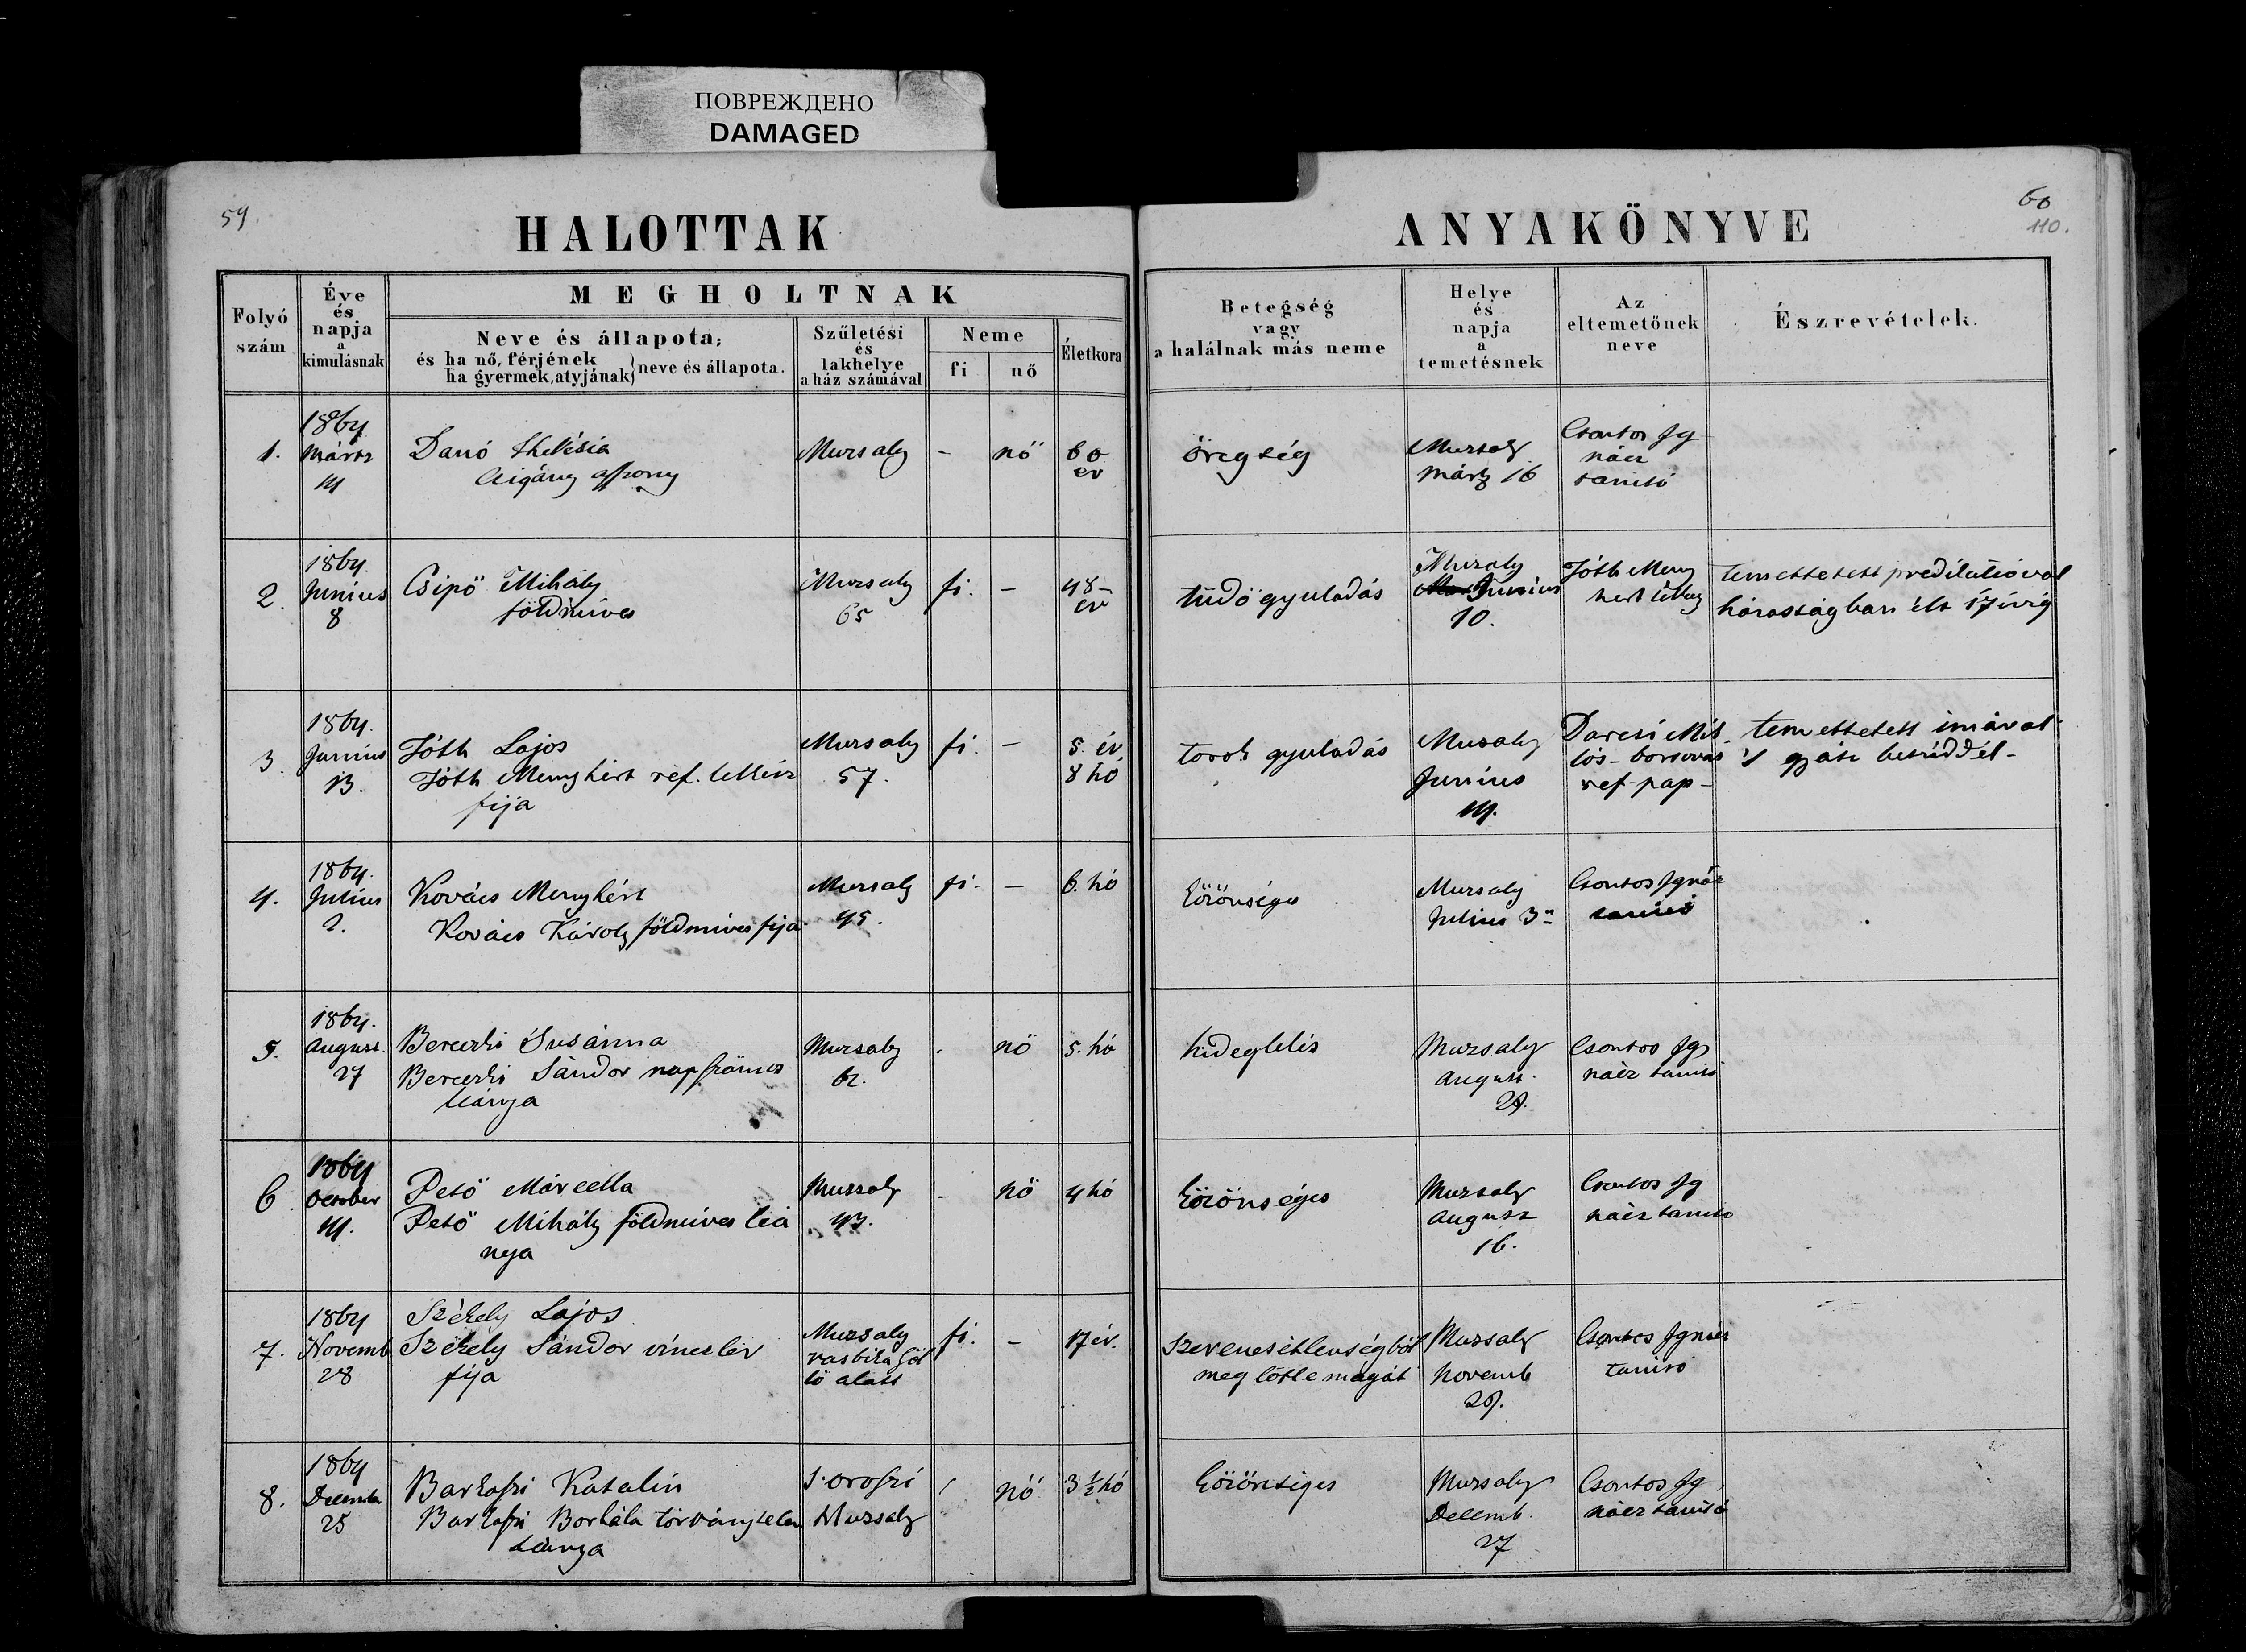 ПОВРЕЖДЕНО
DAMAGED
59.
60
110.
HALOTTAK
ANYAKÖNYVE
Folyó
szám
Éve
és
napja
a
kimulásnak
MEGHOLTNAK
Neve és állapota;
és ha nő, férjének
ha gyermek, atyjának
neve és állapota.
Születési
és
lakhelye
a ház számával
Neme
fi
nő
Életkora
Betegség
vagy
a halálnak más neme
Helye
és
napja
a
temetésnek
Az
eltemetőnek
neve
Észrevételek.
1.
1864
Márts
14
Danó
Czigány asszony
Mursaly
-
nő
60
ev
öregség
Mursaly
Márts 16
Csontos Ig
nácz
tanitó
2.
1864.
Junius
8
Csipö Mihály
földmüves
Mursaly
65
fi.
-
48-
ev
tüdögyuladás
Mursaly
Junius
10.
Tóth Meny
hert
temettetett predikátioval
házasságban élt 17 évig
3.
1864.
Junius
13.
Tóth Lajos
Tóth Menyhért ref.
fija
Mursaly
57.
fi.
-
5. év
8 hó
torok gyuladás
Mursaly
Junius
14.
Darcsi Mik
lós-
ref-pap-
temettetett imával
's gyász beszéddel-
4.
1864.
Julius
2.
Kovács Menyhért
Kovács Károly földmüves fija
Mursaly
45.
fi.
-
6. hó
közönséges
Mursaly
Julius 3-
Csontos Ignác
tanitó
5.
1864.
August.
27
Bereczki Susánna
Bereczki Sándor napszámos
leánya
Mursaly
62.
-
nő
5. hó
hideglelés
Mursaly
August.
29.
Csontos Ig
nácz tanitó
6.
1864
October
14.
Petö Marcella
Petö Mihály földmüves leá
nya
Mursaly
-
nő
4 hó
közönséges
Mursaly
August
16.
Csontos Ig
nácz tanito
7.
1864
Novemb
28
Székely Lajos
Székely Sándor vinczlér
fija
Mursaly
alatt
fi.
-
17 év.
Szerencsétlenségböl
meg lötte magát
Mursaly
Novemb
29.
Csontos Ignácz
tanitó
8.
1864
Decemb
25
Barkaszi Katalin
Barkaszi Borbála törvénytelen
Leánya
Mursaly
nő
3 1/2 hó
közönséges
Mursaly
Decemb.
27
Csontos Ig
nácz tanitó